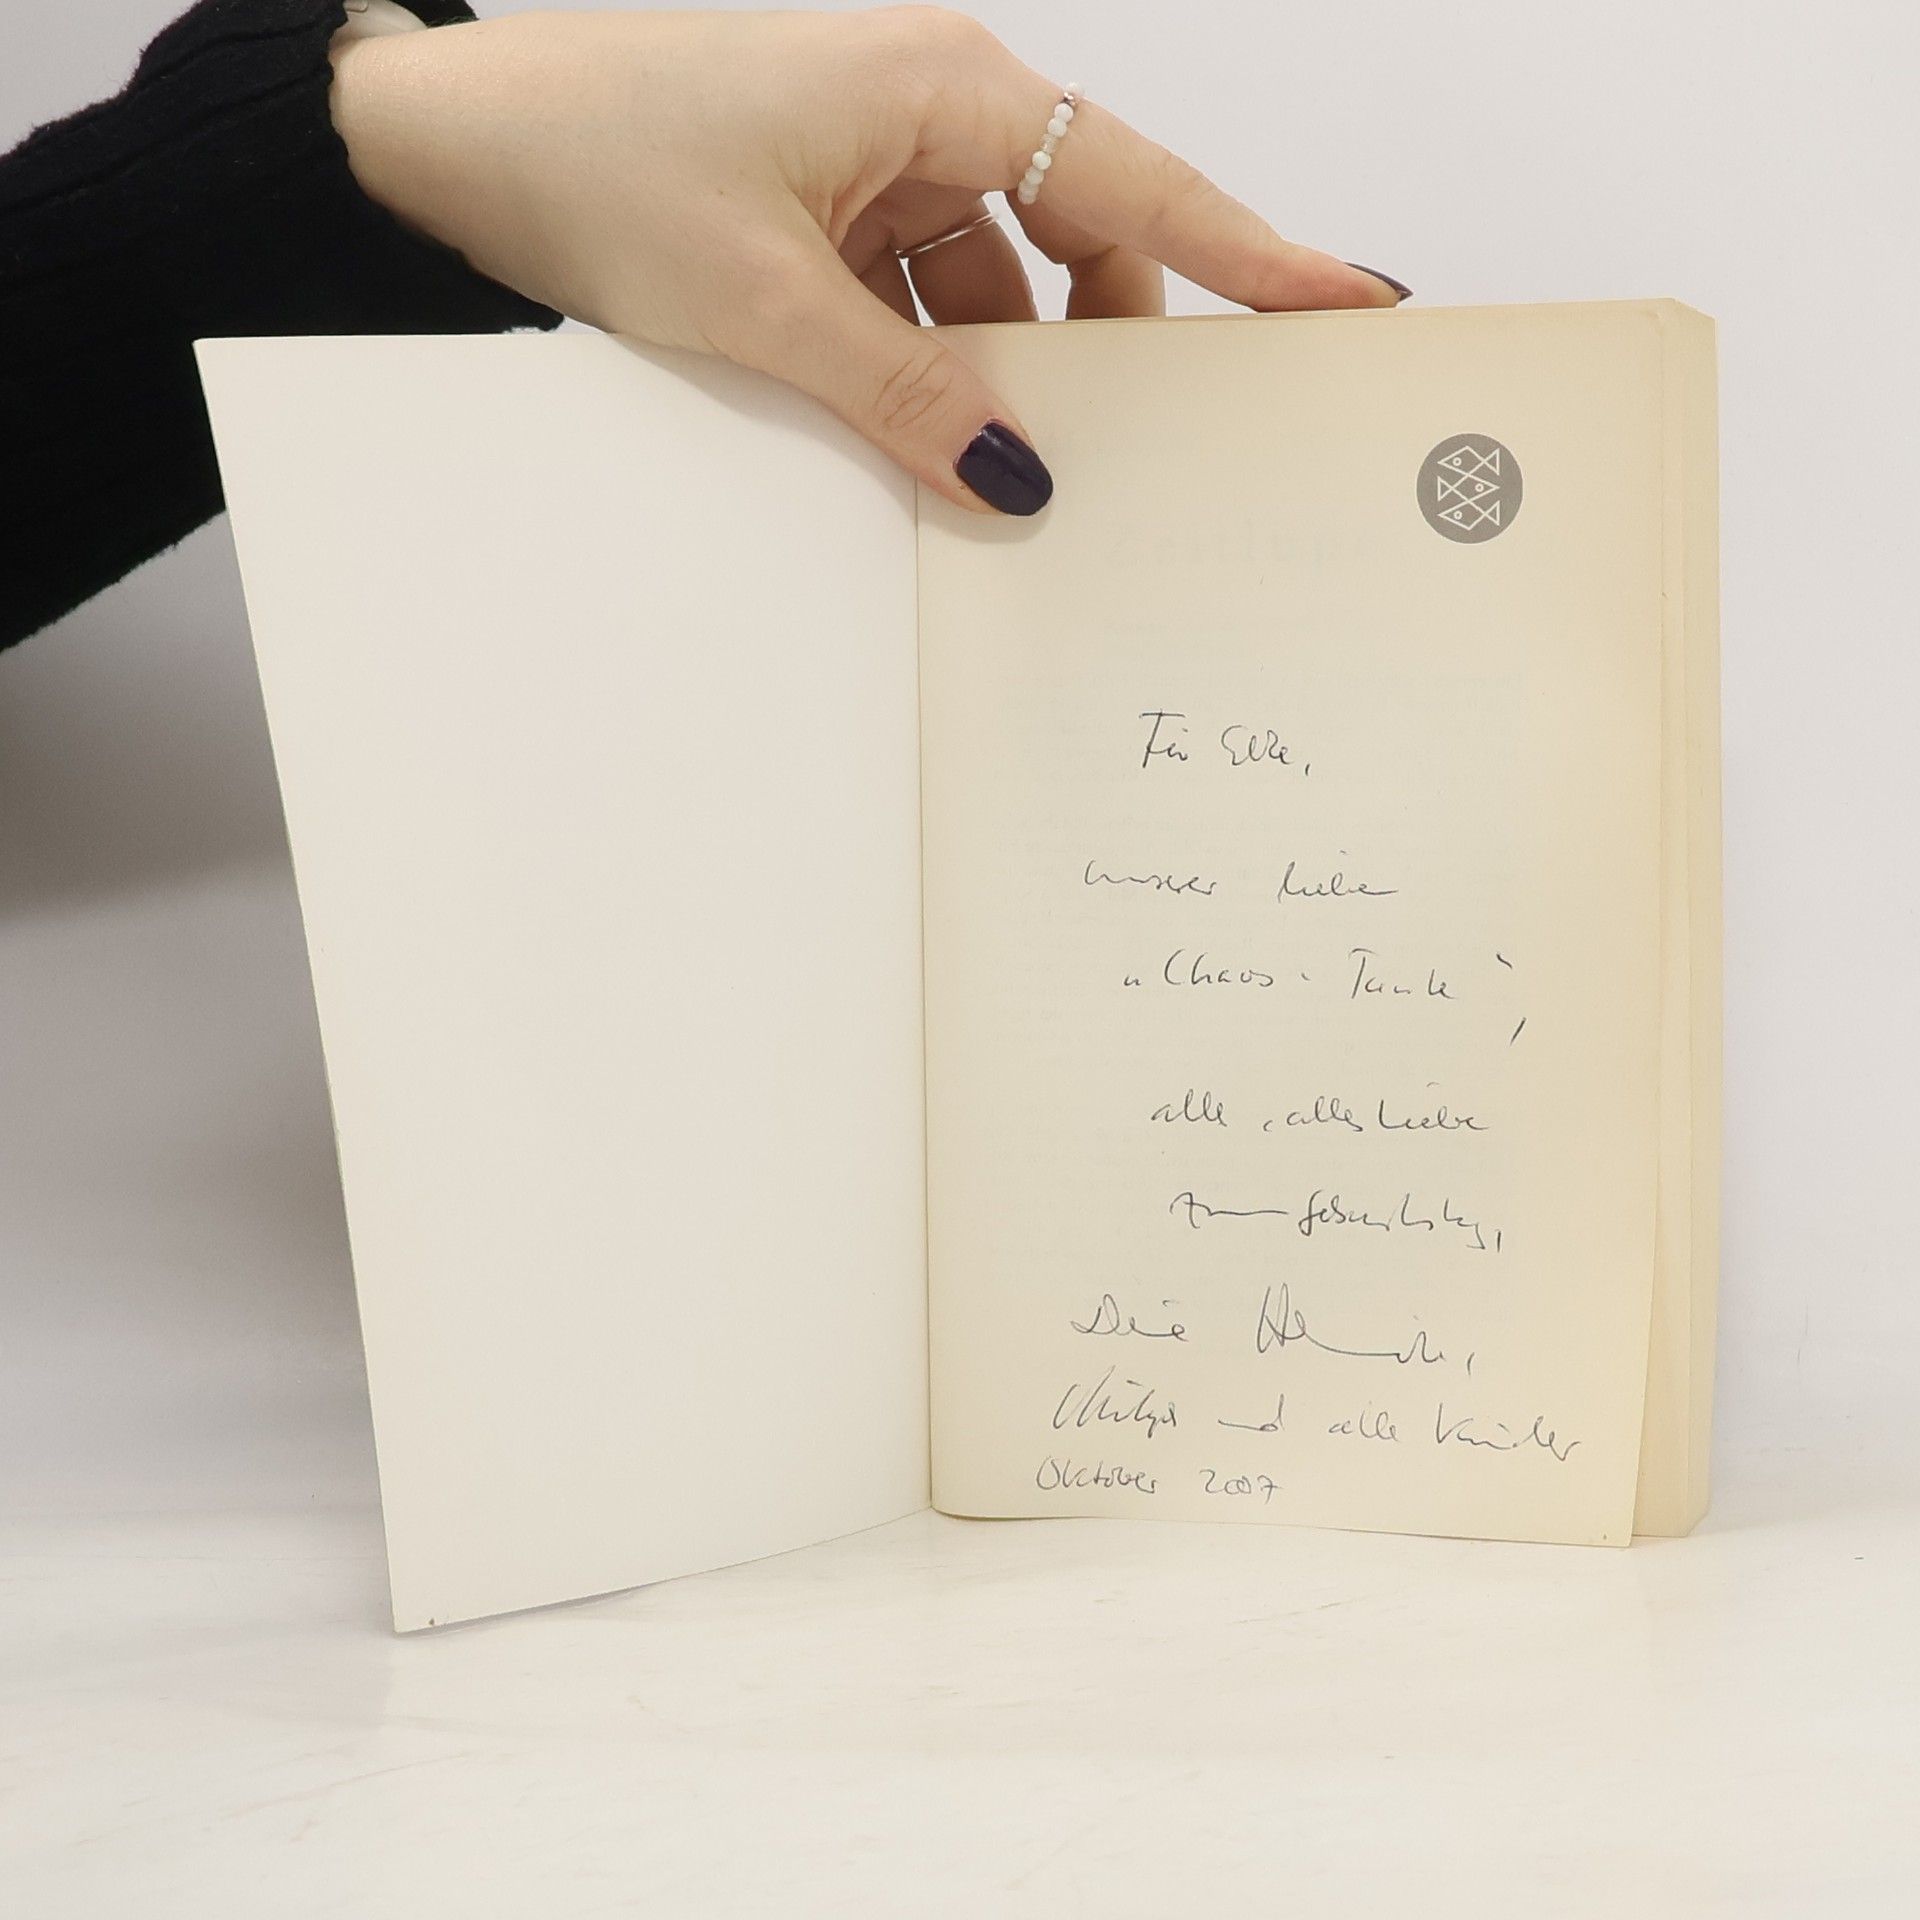 Für Elke,
unserer lieben
„Chaos-Tante",
alles, alles Liebe
zum Geburtstag,
Deine
und alle Kinder
Oktober 2007